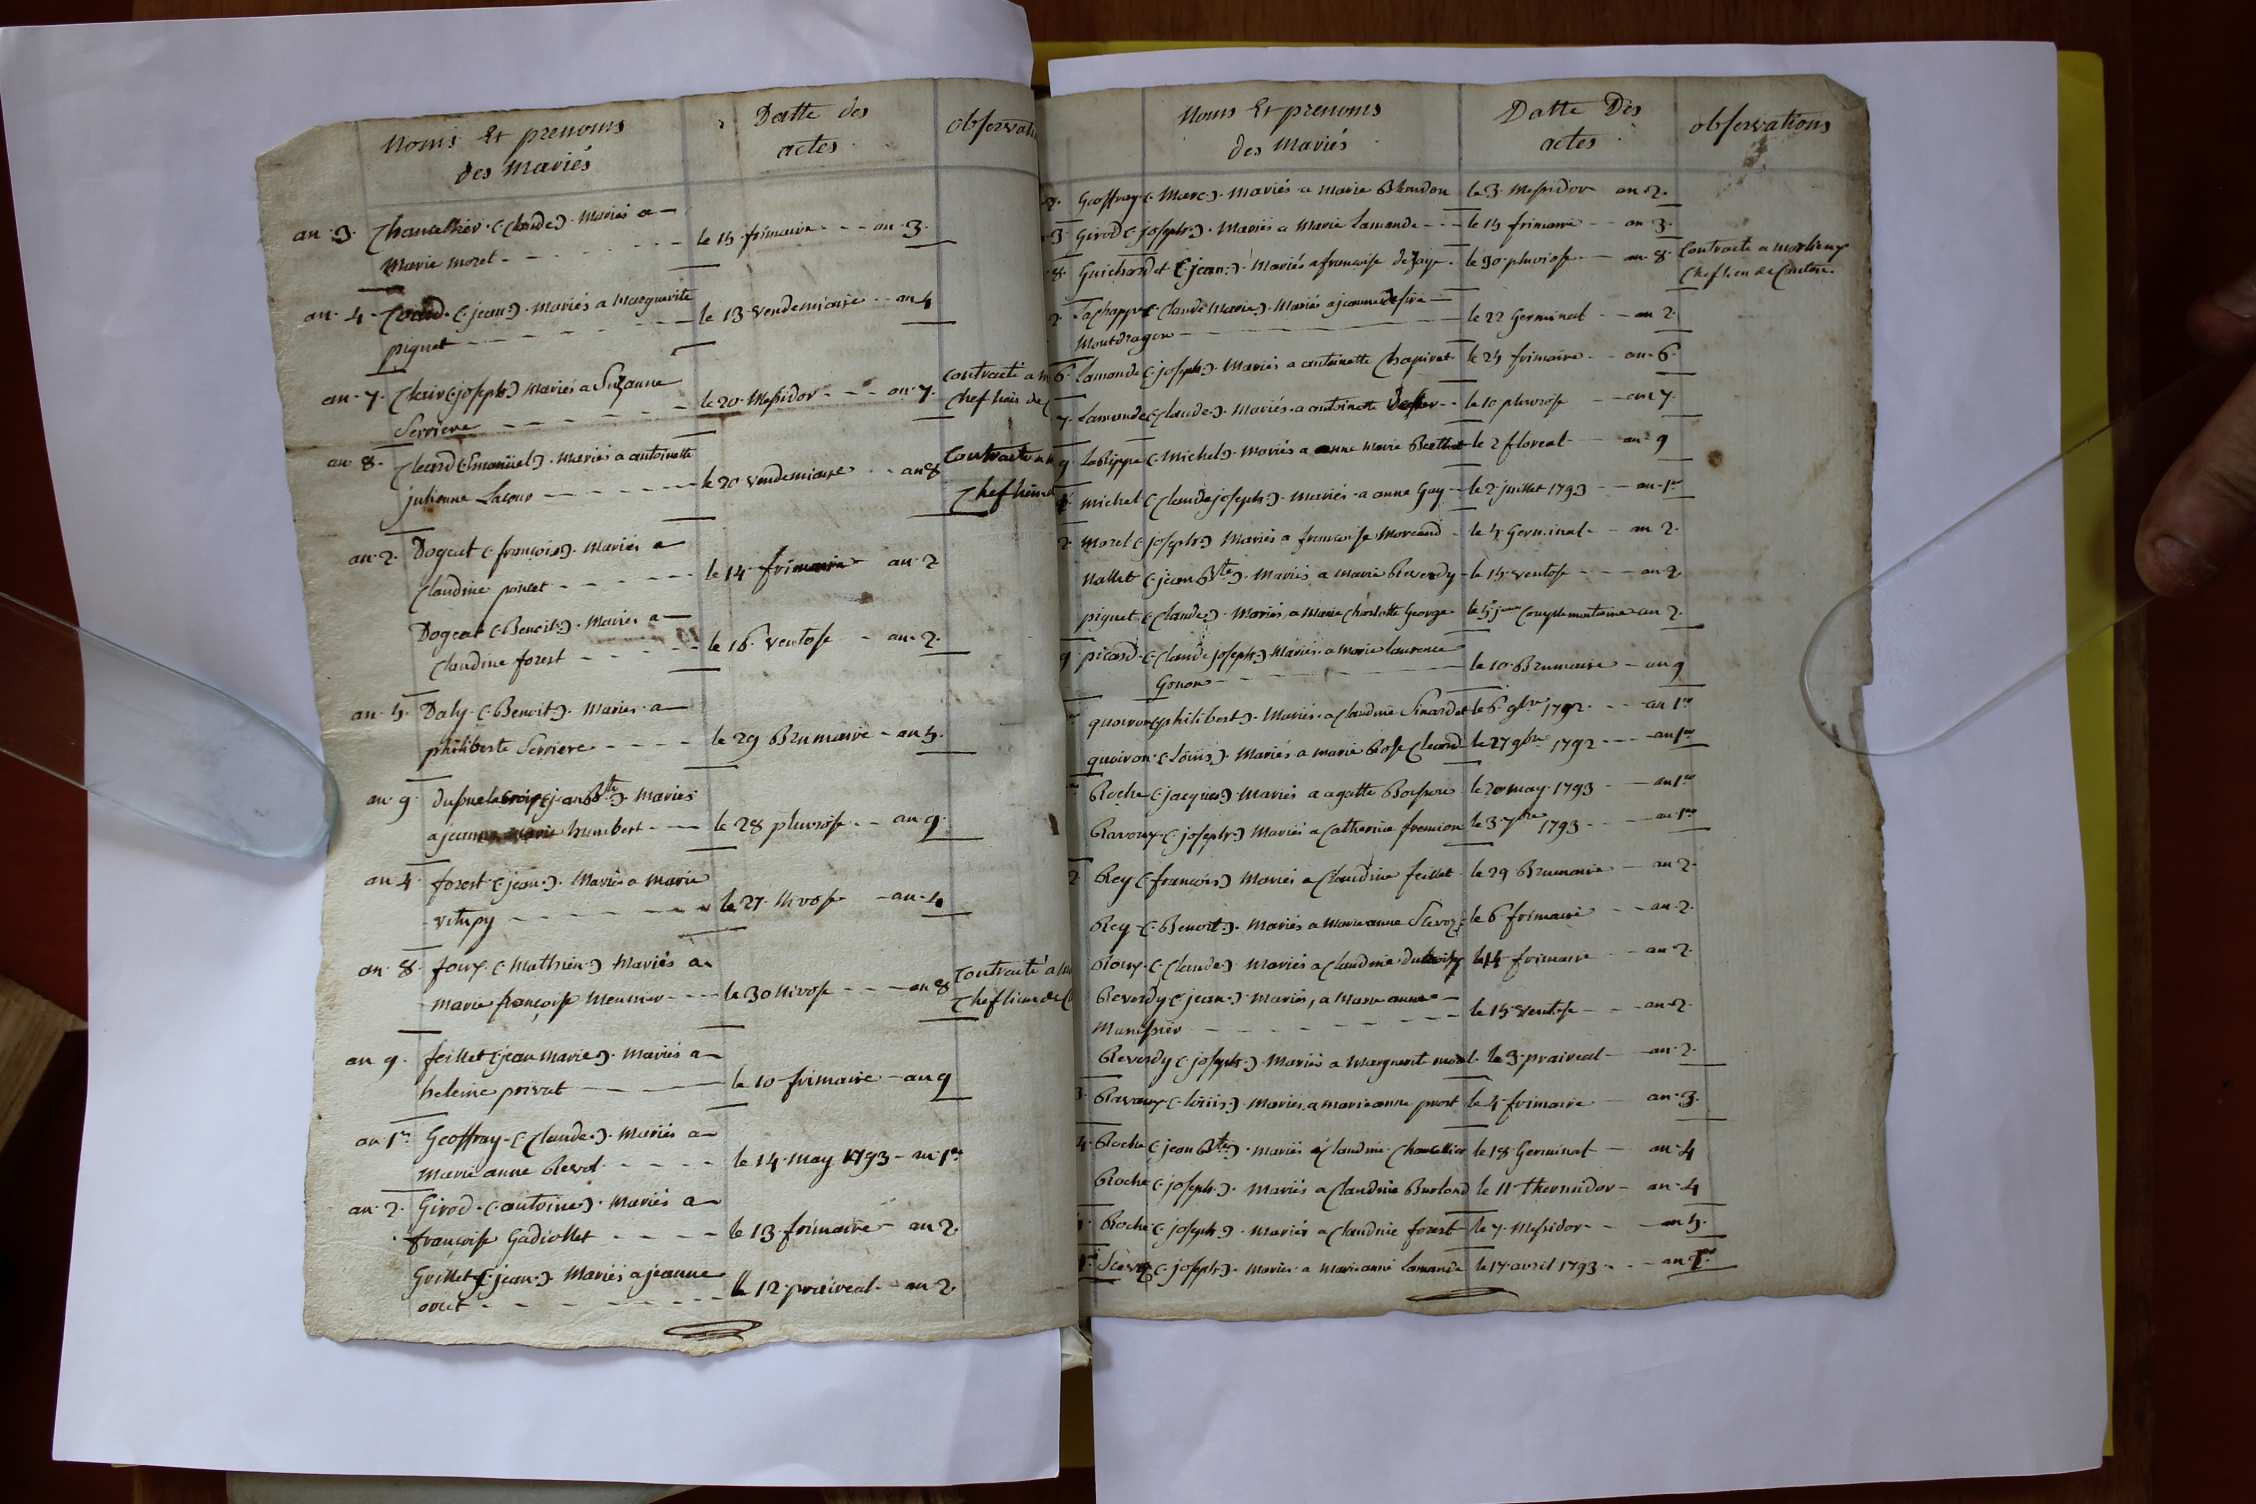 Noms Et prenoms
des Mariés
Datte des
actes
observati
an 3. Chancelliér (Claude). Mariés a
Marie morel
le 15 frimaire an 3.
an 4. (jean). Mariés a Marguerite
piquet
le 13 vendemiaire an 4
an 7. Clair (joseph) Mariés a Suzanne
Serriere
le 20 Messidor an 7.
Contracté a
Chef lieu de
an 8. Cleard (Emanüel). Mariés a antoinette
julienne Lacour
le 20 vendemiaire an 8
Contracté a
Chef lieu
an 2. Dogeat (françois). Mariés a
Claudine poncet
le 14 frimaire an 2
Dogeat (Benoit). Mariés a
Claudine forest
le 16 Ventose an 2.
an 5. Daly (Benoit). Mariés a
philiberte Serriere
le 29 Brumaire an 5.
an 9. (jean Bte). Mariés
a jeanne marie humbert
le 28 pluviose an 9.
an 4. forest (jean). Mariés a Marie
vitupy
le 27 Nivose an 4
an 8. joux (Mathieu) Mariés a
marie françoise Meunier
le 30 Nivose an 8
Contracté a
Chef lieu de
an 9. feillet (jean marie). Mariés a
heleine privat
le 10 frimaire an 9
an 1er Geoffray (Claude). Mariés a
Marie anne Revol
le 14 May 1793 an 1er
an 2. Girod (antoine). Mariés a
françoise Gadiollet
le 13 frimaire an 2.
Guillet (jean). Mariés a jeanne
le 12 praireal an 2.
Noms Et prenoms
des Mariés
Datte Des
actes
observations
2. Geoffray (Marc). Mariés a marie Blondon le 3 Messidor an 2.
3. Girod (joseph). Mariés a Marie Lamande le 15 frimaire an 3.
8. Guichardet (jean). Mariés a françoise le 30 pluviose an 8. Contracté a
Chef lieu de Canton
2. (Claude Marie). Mariés a jeanne
Montdragon
le 22 Germinal an 2.
6. Lamande (joseph). Mariés a antoinette Chapirat le 25 frimaire an 6.
7. Lamande (Claude). Mariés a antoinette le 10 pluviose an 7.
9. Labrippe (Michel). Mariés a anne Marie Berthet le 2 floreal an 9
Michel (Claude joseph). Mariés a anne Gay le 2 juillet 1793 an 1er
2. Morel (joseph) Mariés a francoise Moreand le 5 Germinal an 2.
Nallet (jean Bte). Mariés a marie Reverdy le 15 ventose an 2
piquet (Claude). Mariés a Marie Charlotte George le 5e jour Complementaire an 2.
9. picard (Claude joseph). Mariés a marie laurence
Gonon
le 10 Brumaire an 9
quoiron (philibert). Mariés a Claudine Sirardet le 6 9bre 1792. an 1er
quoiron (Loüis). Mariés a marie Rose Cleard le 27 9bre 1792 an 1er
Roche (jacques). Mariés a agatte Boisson le 20 may 1793 an 1er
Ravoux (joseph) Mariés a Catherine fremion le 3 7bre 1793 an 1er
2. Rey (françois) Mariés a Claudine feillet le 29 Brumaire an 2.
Rey (Benoit). Mariés a Marie anne Scevoz le 6 frimaire an 2.
Roux (Claude). Mariés a Claudine le 14 frimaire an 2.
Reverdy (jean). Mariés, a Marie anne
le 15 ventose an 2.
Reverdy (joseph). Mariés a Marguerit morel le 3 praireal an 2.
3. Ravoux (Loüis). Mariés a marie anne prost le 4 frimaire an 3.
4. Roche (jean Bte) mariés a Claudine Chancellier le 18 Germinal an 4
Roche (joseph). Mariés a Claudine Burlond le 11 Thermidor an 4
Roche (joseph) Mariés a Claudine forest le 7 Messidor an 5.
1er Scevoz (joseph). Mariés a Marie anne Lamande le 17 avril 1793 an 1er